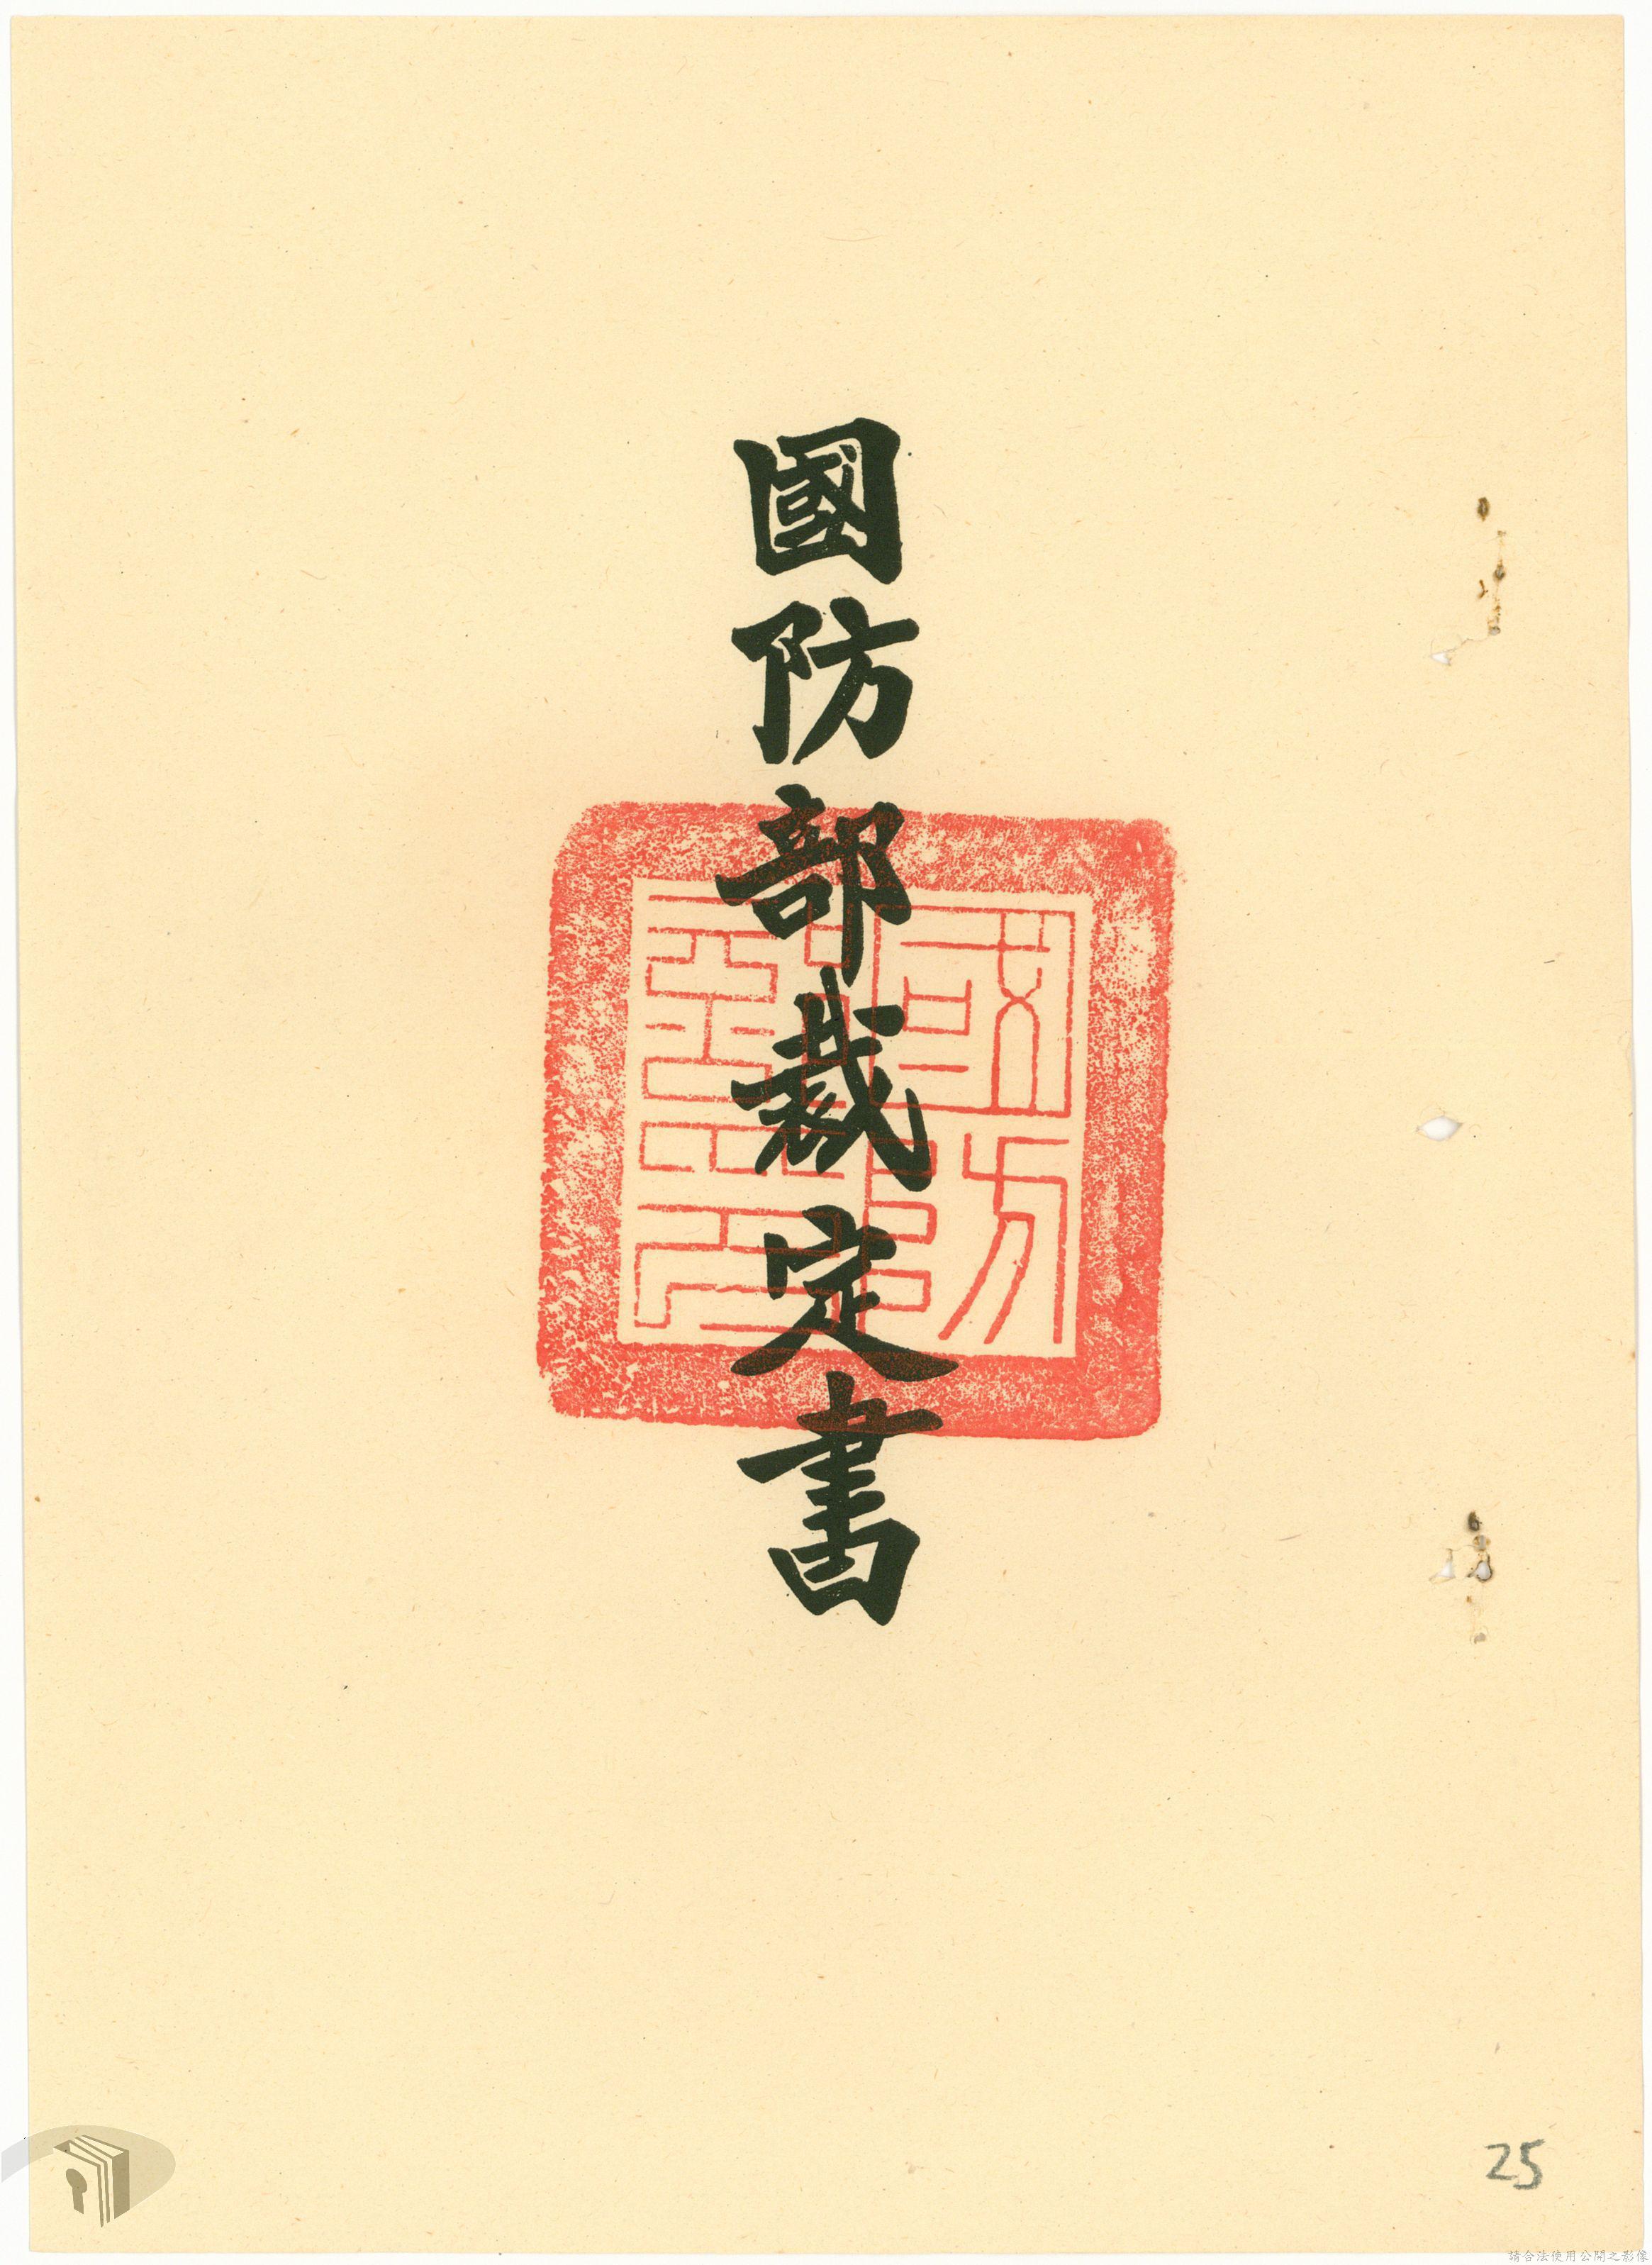 國防部裁定書
國防部印
25
請合法使用公開之影像